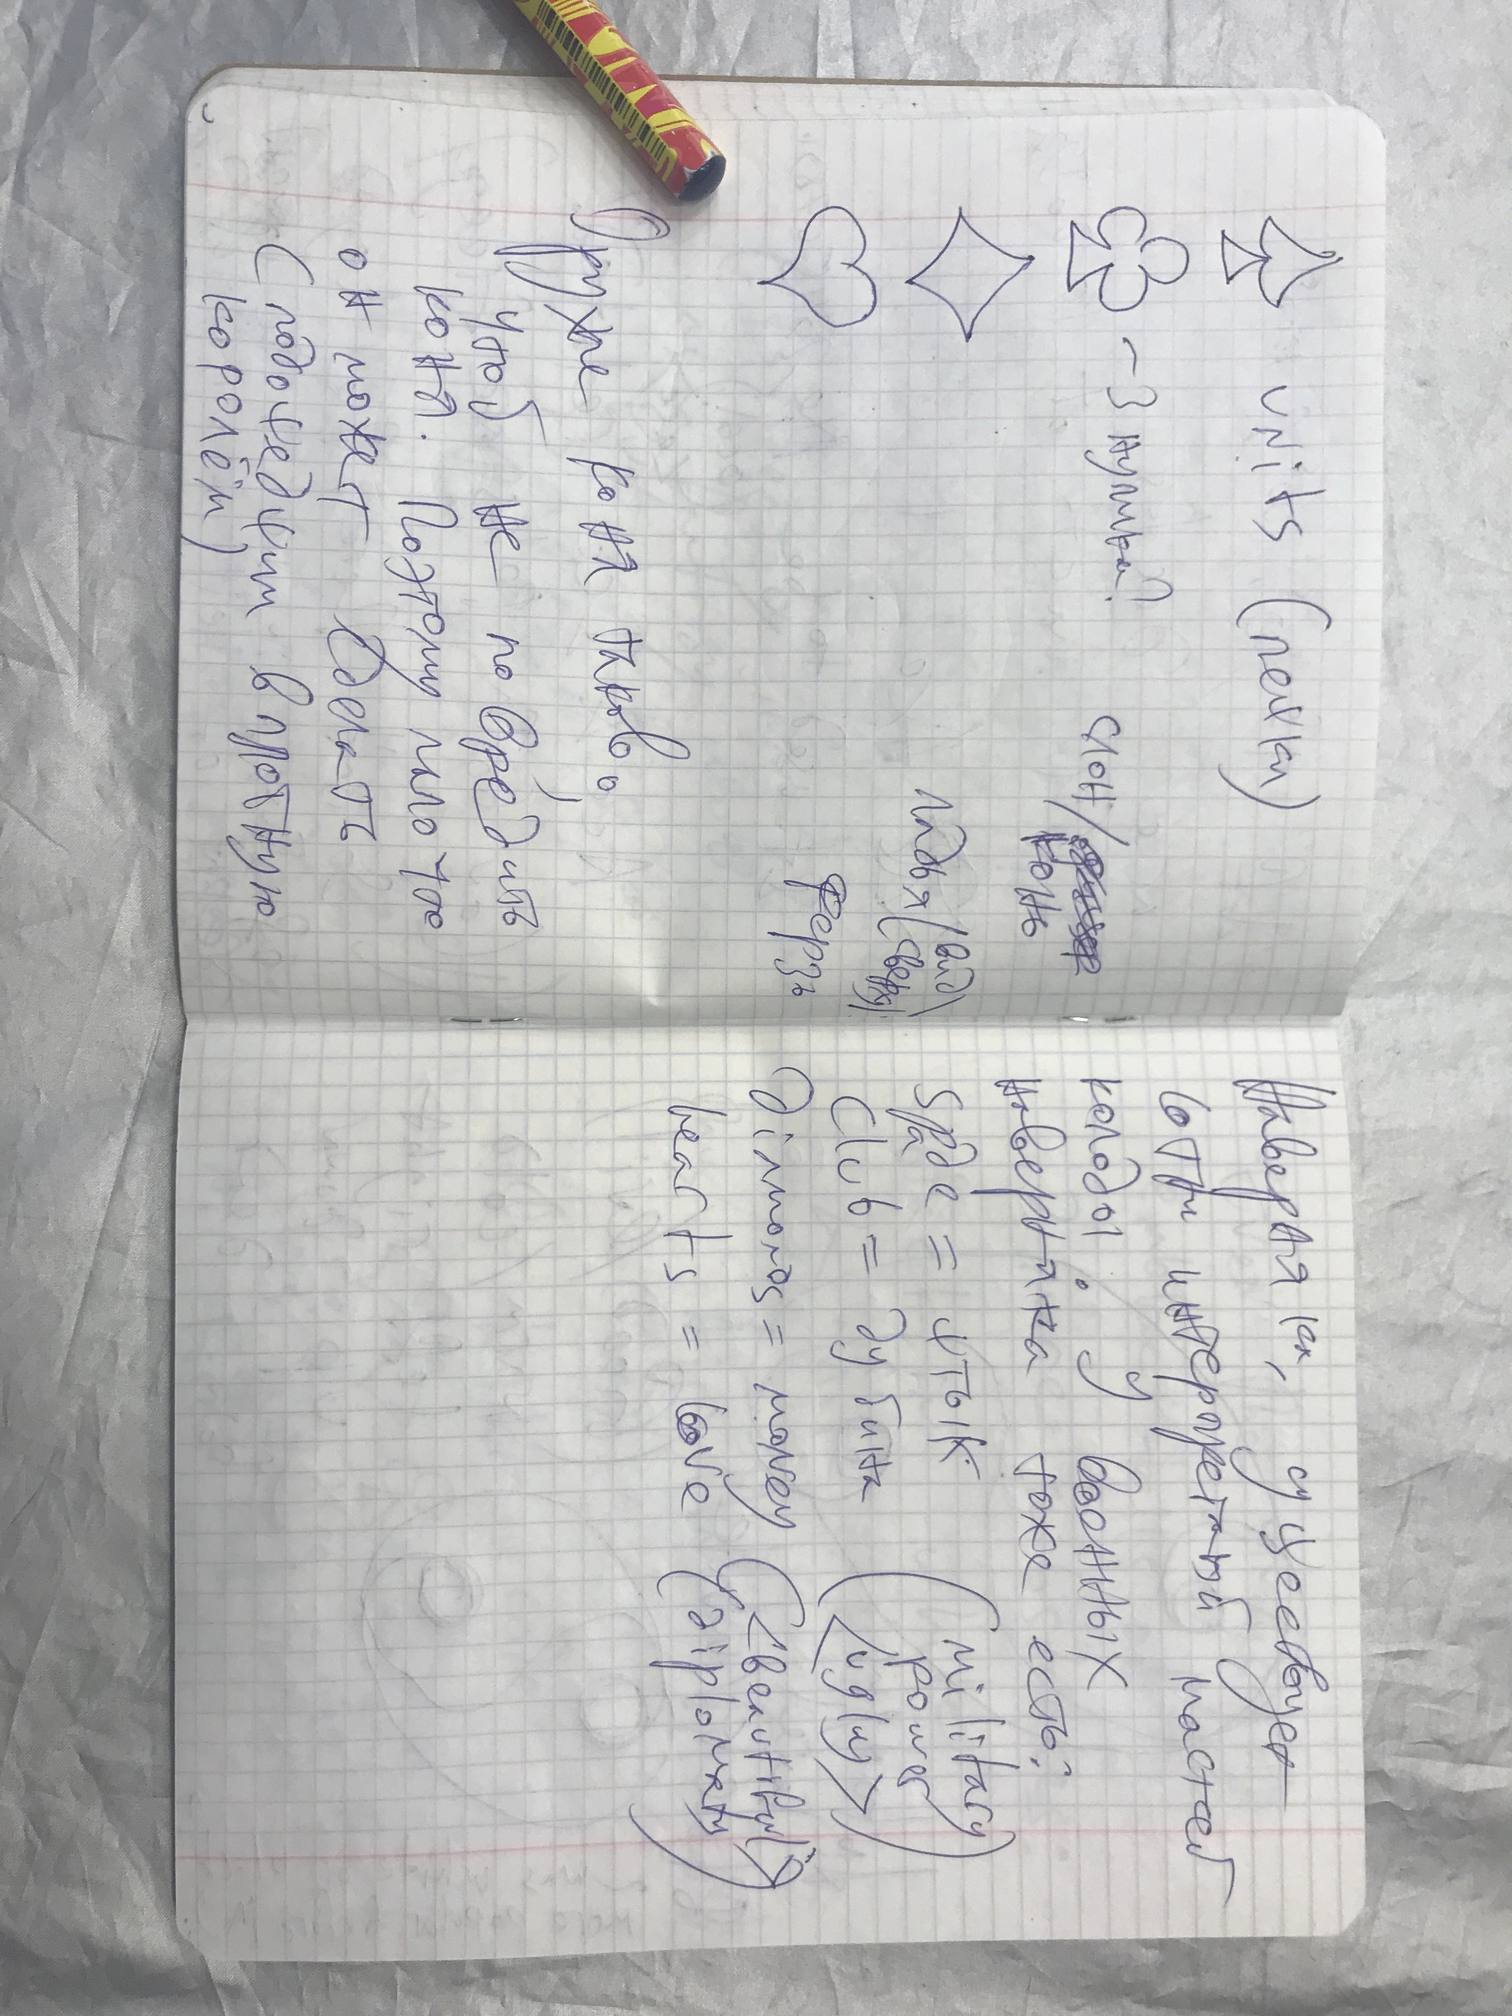 units (пешки)
– 3 нулика?
слон/
конь
ладья (вид
сверху)
ферзь
Оружие коня таково,
чтоб не повредить
коня. Поэтому никого
он может сделать
(подошедшим вплотную
королём)
Наверняка, существует
сотни интерпретаций мастей
колоды. У военных
наверняка тоже есть:
spade = штык (military
power
club = дубина <ugly>)
diamonds = money (<beautiful>
hearts = love (diplomaty)